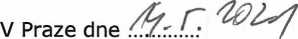 V Praze dne 14. 5. 2021